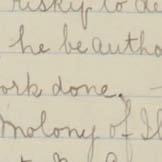 risky to de
he be autho
ork done.
molony of